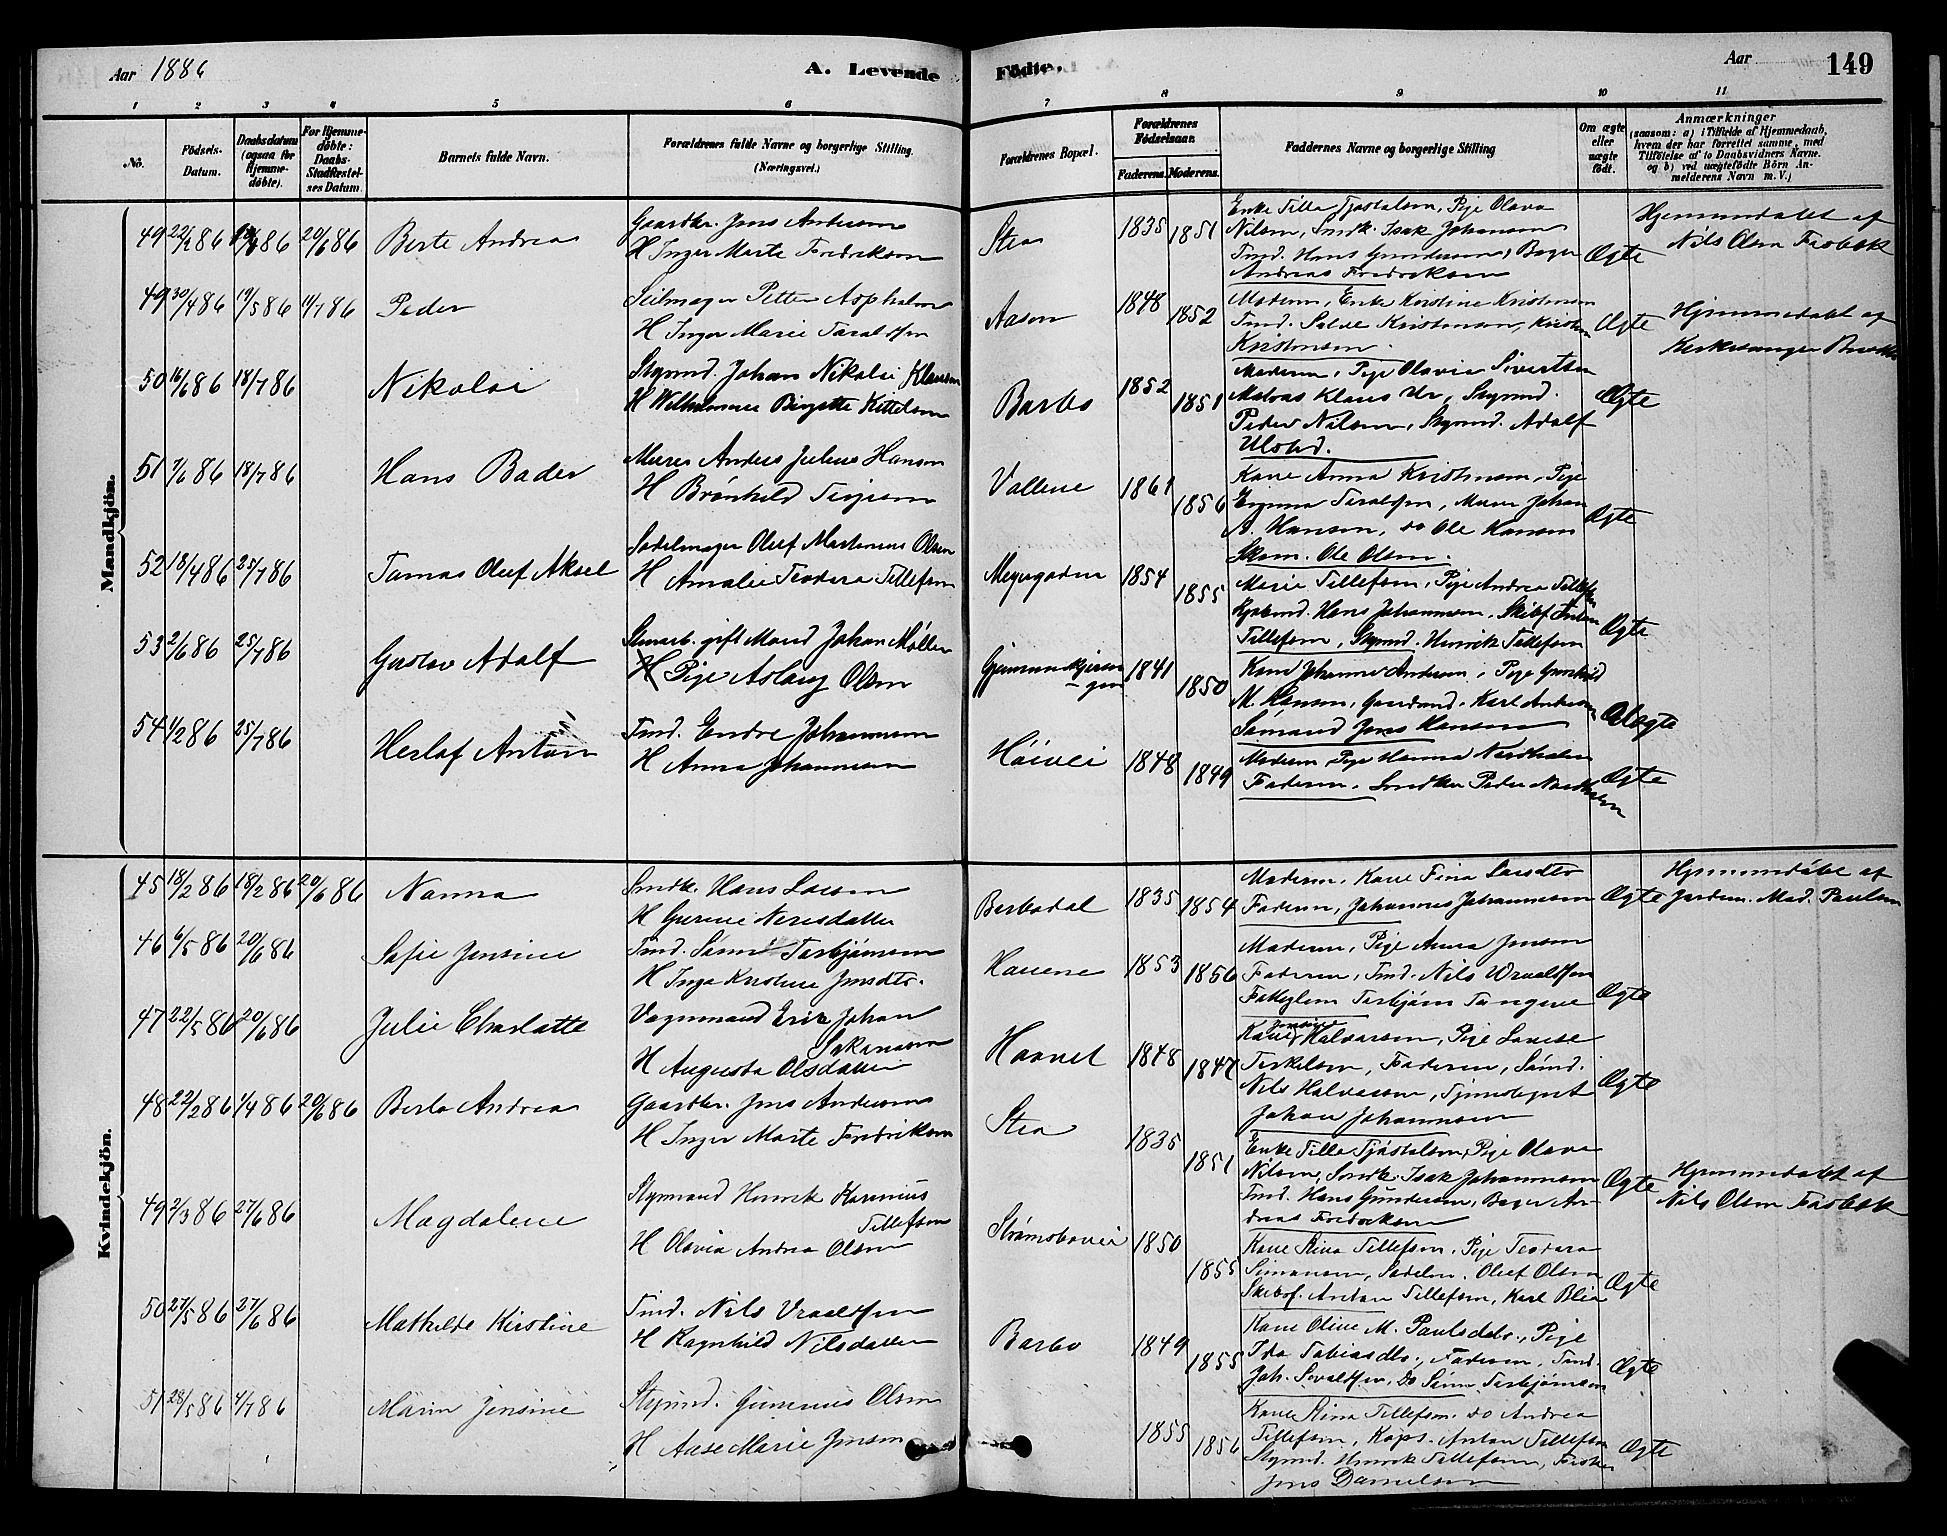 Aar 1886 A. Levende Fødte. Aar 149
1 2 3 4 5 6 7 8 9 10 11
No. Fødsels-Datum. Daabsdatum (ogsaa for Hjemmedøbte). For Hjemmedøbte: Daabs-Stadfæstelses Datum. Barnets fulde Navn. Forældrenes fulde Navne og borgerlige Stilling. (Næringsvei.) Forældrenes Bopæl. Forældrenes Fødselsaar. Faderens. Moderens. Faddernes Navne og borgerlige Stilling Om ægte eller uægte født. Anmærkninger (saasom: a) i Tilfælde af Hjemmedaab, hvem der har forrettet samme, med Tilføielse af to Daabsvidners Navne. og b) ved uægtefødte Börn Anmelderens Navn m. V.)
Mandkjön.
49 22/2 86 1/4 86 20/6 86 Berte Andrea Gaardbr. Jens Andersen
H Inger Marte Fredriksen Stea 1835 1851 Enke Tilla Tjøstolsen, Pige Olava
Nilsen, Smdk. Isak Johansen
Tmd. Hans Gundersen, Bager
Andreas Fredriksen Ægte Hjemmedøbt af
Nils Olsen
49 30/4 86 19/5 86 11/7 86 Peder Seilmager Petter Aspholm
H Inger Marie Taraldsen Aasen 1848 1852 Moderen, Enke Kirstine Kristensen
Tmd. Salve Kristensen, Kristen
Kristensen. Ægte Hjemmedøbt af
Kirkesanger
50 16/6 86 18/7 86 Nikolai Stymd. Johan Nikolai Klausen
H Wilhelmine Birgitte Kittelsen Barbo 1852 1851 Moderen, Pige Olavia Sivertsen
Matros Klaus Ur, Stymd.
Peder Nilsen, Stymd. Adolf
Ulsted. Ægte
51 7/6 86 18/7 86 Hans Bader Murer Anders Julius Hansen
H Brønhild Terjesen Vollene 1861 1856 Kone Anna Kristensen, Pige
Emma Taraldsen, Murer Johan
A. Hansen, do Ole Hansen
Skom. Ole Olsen. Ægte
52 18/4 86 25/7 86 Tomas Oluf Aksel Sadelmager Oluf Martinius Olsen
H Amalie Teodora Tellefsen 1854 1855 Marie Tellefsen, Pige Andrea Tellefsen
Hans Johannesen, Skibsf. Anton
Tellefsen, Stymd. Henrik Tellefsen Ægte
53 2/6 86 25/7 86 Gustav Adolf Stenarb. gift Mand Johan Møller
H Pige Aslaug Olsen 1841 1850 Kone Johanne Andersen, Pige Gunhild
M. Hansen, Gaardmd. Karl Andersen
Sømand Jens Hansen Uægte
54 1/2 86 25/7 86 Herlof Anton Tmd. Endre Johannesen
H Anna Johannesen Høivei 1848 1849 Moderen, Pige Hanna Nordholm
Faderen, Snedker Peder Nordholm Ægte
Kvindekjön.
45 18/2 86 18/2 86 20/6 86 Nanna Smdk. Hans Larsen
H Gurine Neresdatter Berbodal 1835 1854 Moderen, Kone Fina Larsdtr
Faderen, Johannes Johannesen Ægte Hjemmedøbt af
Jordem. Mad. Paulsen
46 6/5 86 20/6 86 Sofie Jensine Tmd. Sønni Torbjørnsen
H Inga Kirstine Jensdtr. Havene 1853 1856 Moderen, Pige Anna Jensen
Faderen, Tmd. Nils Vraaldsen
Torbjørn Tangene Ægte
47 22/5 86 20/6 86 Julie Charlotte Vognmand Erik Johan
Sakariasen
H Augusta Olsdatter Haavet 1848 1847 Kone Jensine Halvorsen, Pige Lovise
Terkelsen, Faderen, Sømd.
Nils Halvorsen, Tjenestegut
Johan Johannesen Ægte
48 22/2 86 1/4 86 20/6 86 Berte Andrea Gaardbr. Jens Andersen
H Inger Marte Fredriksen Stea 1835 1851 Enke Tilla Tjøstolsen, Pige Olava
Nilsen, Smdk. Isak Johannesen
Tmd. Hans Gundersen, Bager An-
dreas Fredriksen Ægte Hjemmedøbt af
Nils Olsen
49 2/3 86 27/6 86 Magdalene Stymand Henrik Karinius
Tellefsen
H Olavia Andrea Olsen Strømsbovei 1850 1855 Kone Stina Tellefsen, Pige Teodora
Simonsen, Sadelm. Oluf Olsen
Skibsf. Anton Tellefsen, Karl Blia Ægte
50 27/5 86 27/6 86 Mathilde Kirstine Tmd. Nils Vraaldsen
H Ragnhild Nilsdatter Barbo 1849 1855 Kone Oline M. Paulsdtr., Pige
Ida Tobiasdtr., Faderen, Tmd.
Joh. Sevaldsen, do Sønni Torbjørnsen Ægte
51 28/5 86 4/7 86 Marin Jensine Stymd. Gunerius Olsen
H Aase Marie Jensen 1855 1856 Kone Stina Tellefsen, do Andrea
Tellefsen, Kaps. Anton Tellefsen
Stymd. Henrik Tellefsen,
Jens Danielsen Ægte